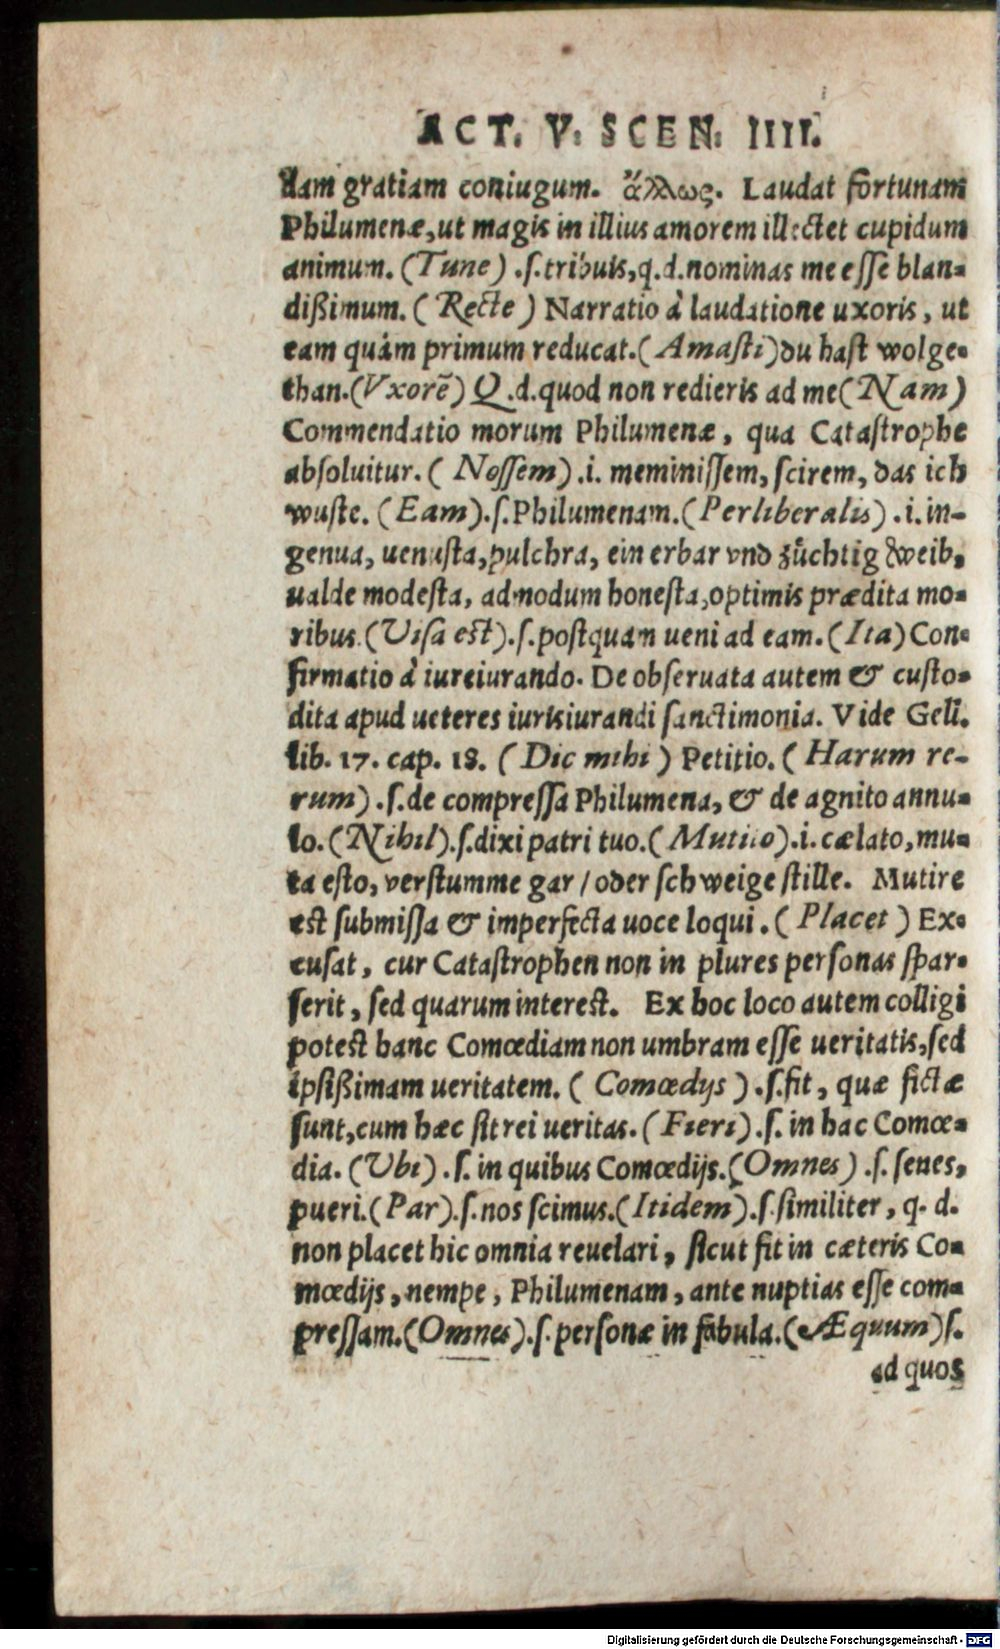 ACT. V. SCEN. IIII.
dam gratiam coniugum. ἄλλως. Laudat fortunam
Philumenæ, ut magis in illius amorem illectet cupidum
animum. (Tune) .ſ. tribuis, q.d. nominas me eſſe blan-
dißimum. (Recte) Narratio à laudatione uxoris, ut
eam quàm primum reducat. (Amaſti) du haſt wolge-
than. (Vxorē) Q.d. quod non redieris ad me (Nam)
Commendatio morum Philumenæ, qua Cataſtrophe
abſoluitur. (Noſſem) .i. meminiſſem, ſcirem, das ich
wuſte. (Eam) .ſ. Philumenam. (Perliberalis) .i. in-
genua, uenuſta, pulchra, ein erbar vnd zůchtig weib,
ualde modeſta, admodum honeſta, optimis prædita mo-
ribus. (Viſa eſt) .ſ. poſtquam ueni ad eam. (Ita) Con-
firmatio à iureiurando. De obſeruata autem & cuſto-
dita apud ueteres iurisiurandi ſanctimonia. Vide Gell.
lib. 17. cap. 18. (Dic mihi) Petitio. (Harum re-
rum) .ſ. de compreſſa Philumena, & de agnito annu-
lo. (Nihil) .ſ. dixi patri tuo. (Mutito) .i. cælato, mu-
ta eſto, verſtumme gar / oder ſchweige ſtille. Mutire
eſt ſubmiſſa & imperfecta uoce loqui. (Placet) Ex-
cuſat, cur Cataſtrophen non in plures perſonas ſpar-
ſerit, ſed quarum intereſt. Ex hoc loco autem colligi
poteſt hanc Comœdiam non umbram eſſe ueritatis, ſed
ipſißimam ueritatem. (Comœdijs) .ſ. fit, quæ fictæ
ſunt, cum hæc ſit rei ueritas. (Fieri) .ſ. in hac Comœ-
dia. (Vbi) .ſ. in quibus Comœdijs. (Omnes) .ſ. ſenes,
pueri. (Par) .ſ. nos ſcimus. (Itidem) .ſ. ſimiliter, q. d.
non placet hic omnia reuelari, ſicut fit in cæteris Co-
mœdijs, nempe, Philumenam, ante nuptias eſſe com-
preſſam. (Omnes) .ſ. perſonæ in fabula. (Æquum) ſ.
ad quos
Digitalisierung gefördert durch die Deutsche Forschungsgemeinschaft - DFG